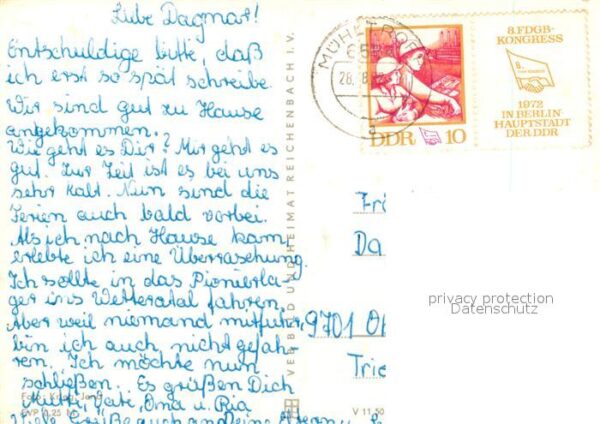 Liebe Dagmar!
Entschuldige bitte, daß
ich erst so spät schreibe.
Wir sind gut zu Hause
angekommen.
Wie geht es Dir? Mir geht es
gut. Zur Zeit ist es bei uns
sehr kalt. Nun sind die
Ferien auch bald vorbei.
Als ich nach Hause kam,
erlebte ich eine Überraschung.
Ich sollte in das Pionierla-
ger ins Wetteratal fahren.
Aber weil niemand mitfuhr,
bin ich auch nicht gefah-
ren. Ich möchte nun
schließen. Es grüßen Dich
Mutti, Vati, Oma u. Ria
Viele Grüße auch an Deine
VERBAND UND HEIMAT REICHENBACH I. V.
V 11 50
MÜHLTROFF
DDR 10
8. FDGB-
KONGRESS
1972
IN BERLIN-
HAUPTSTADT
DER DDR
Fri
Da
9701
Trie
privacy protection
Datenschutz